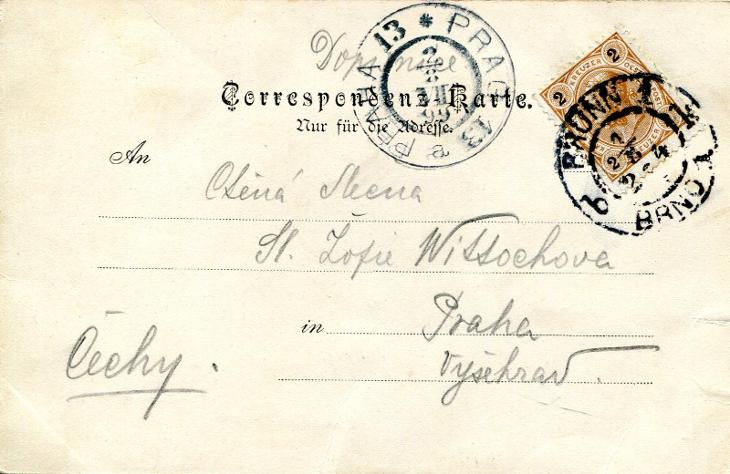 Dopisnice
Correspondenz-Karte.
Nur für die Adresse.
An
Ctěná Slečna
Sl. Žofie Wittochova
in Praha
Vyšehrad.
Čechy.
PRAG 13 * PRAHA 13
2
KREUZER
2
BRÜNN 1
BRNO 1